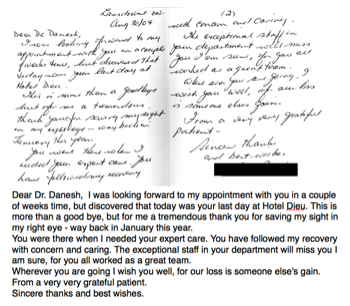 Aug 30/04
Dear Dr Danesh,
I was looking forward to my
appointment with you in a couple
of weeks time, but discovered that
today was your last day at
Hotel Dieu.
This is more than a goodbye
but for me a tremendous
thank you for saving my sight
in my right eye - way back in
January this year.
You were there when I
needed your expert care. You
have followed my recovery
(2)
with concern and caring.
The exceptional staff in
your department will miss
you I am sure, for you all
worked as a great team.
Wherever you are going, I
wish you well, for our loss
is someone else's gain.
From a very very grateful
patient -
Sincere thanks
and best wishes.
Dear Dr. Danesh, I was looking forward to my appointment with you in a couple
of weeks time, but discovered that today was your last day at Hotel Dieu. This is
more than a good bye, but for me a tremendous thank you for saving my sight in
my right eye - way back in January this year.
You were there when I needed your expert care. You have followed my recovery
with concern and caring. The exceptional staff in your department will miss you I
am sure, for you all worked as a great team.
Wherever you are going I wish you well, for our loss is someone else's gain.
From a very very grateful patient.
Sincere thanks and best wishes.